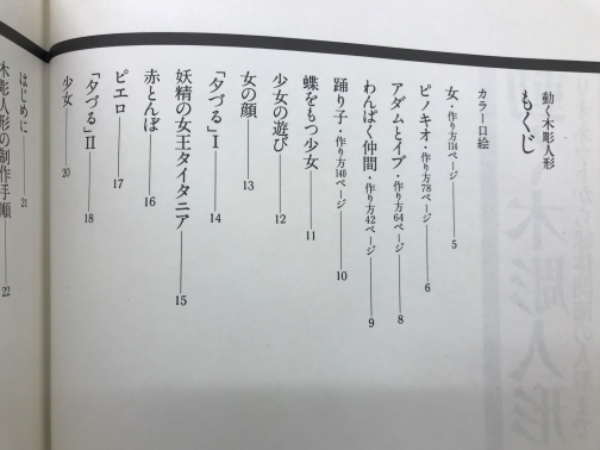 動く木彫人形
もくじ
カラー口絵
女・作り方114ページ――5
ピノキオ・作り方78ページ――6
アダムとイブ・作り方64ページ――8
わんぱく仲間・作り方42ページ――9
踊り子・作り方140ページ――10
蝶をもつ少女――11
少女の遊び――12
女の顔――13
「夕づる」Ⅰ――14
妖精の女王タイタニア――15
赤とんぼ――16
ピエロ――17
「夕づる」Ⅱ――18
少女――20
はじめに――21
木彫人形の制作手順――22